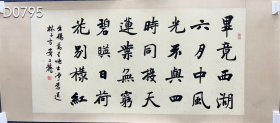 D0795
畢竟西湖
六月中風
光不與四
時同接天
蓮葉無窮
碧映日荷
花別樣紅
楊萬里
林子方